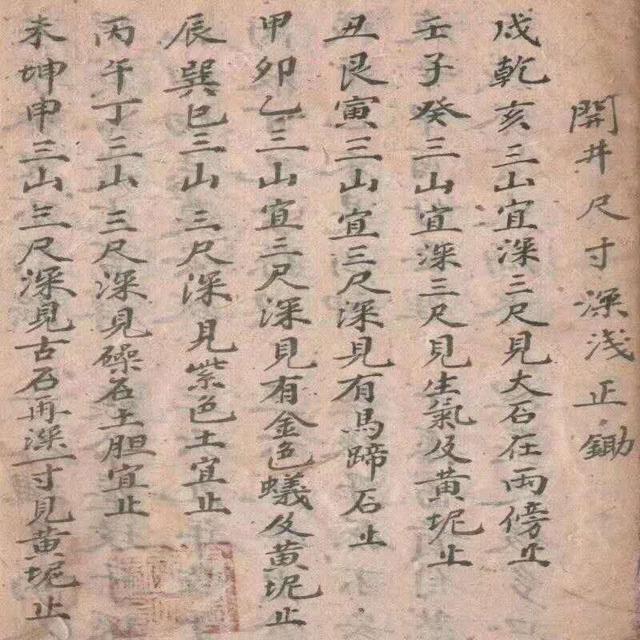 開井尺寸深浅正鋤
戌乾亥三山宜深二尺見大石在両傍止
壬子癸三山宜深二尺見生氣及黄坭止
丑艮寅三山宜三尺深見有馬蹄石止
甲卯乙三山宜二尺深見有金色蟻及黄坭止
辰巽巳三山三尺深見紫色土宜止
丙午丁三山三尺深見礞石土胆宜止
未坤申三山三尺深見古石再深一寸見黄坭止